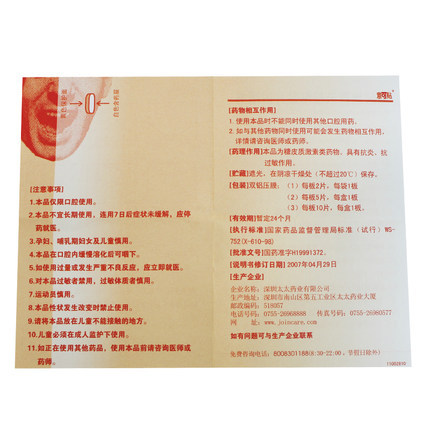 黄色保护层
白色含药层
[注意事项]
1.本品仅限口腔使用。
2.本品不宜长期使用，连用7日后症状未缓解，应停
药就医。
3.孕妇、哺乳期妇女及儿童慎用。
4.本品在口腔内缓慢溶化后可咽下。
5.如使用过量或发生严重不良反应，应立即就医。
6.对本品过敏者禁用，过敏体质者慎用。
7.运动员慎用。
8.本品性状发生改变时禁止使用。
9.请将本品放在儿童不能接触的地方。
10.儿童必须在成人监护下使用。
11.如正在使用其他药品，使用本品前请咨询医师或
药师。
[药物相互作用]
1. 使用本品时不能同时使用其他口腔用药。
2. 如与其他药物同时使用可能会发生药物相互作用，
详情请咨询医师或药师。
[药理作用]本品为糖皮质激素类药物，具有抗炎、抗
过敏作用。
[贮藏]遮光，在阴凉干燥处（不超过20℃）保存。
[包装]双铝压膜，（1）每板2片，每袋1板
（2）每板5片，每盒1板。
（3）每板10片，每盒1板。
[有效期]暂定24个月
[执行标准]国家药品监督管理局标准（试行）WS-
752(X-610-98)
[批准文号]国药准字H19991372。
[说明书修订日期]2007年04月29日
[生产企业]
企业名称：深圳太太药业有限公司
生产地址：深圳市南山区第五工业区太太药业大厦
邮政编码：518057
电话号码：0755-26968888 传真号码：0755-26980577
网 址：www.joincare.com
如有问题可与生产企业联系
免费咨询电话：8008301188(8:30-22:00，节假日除外)